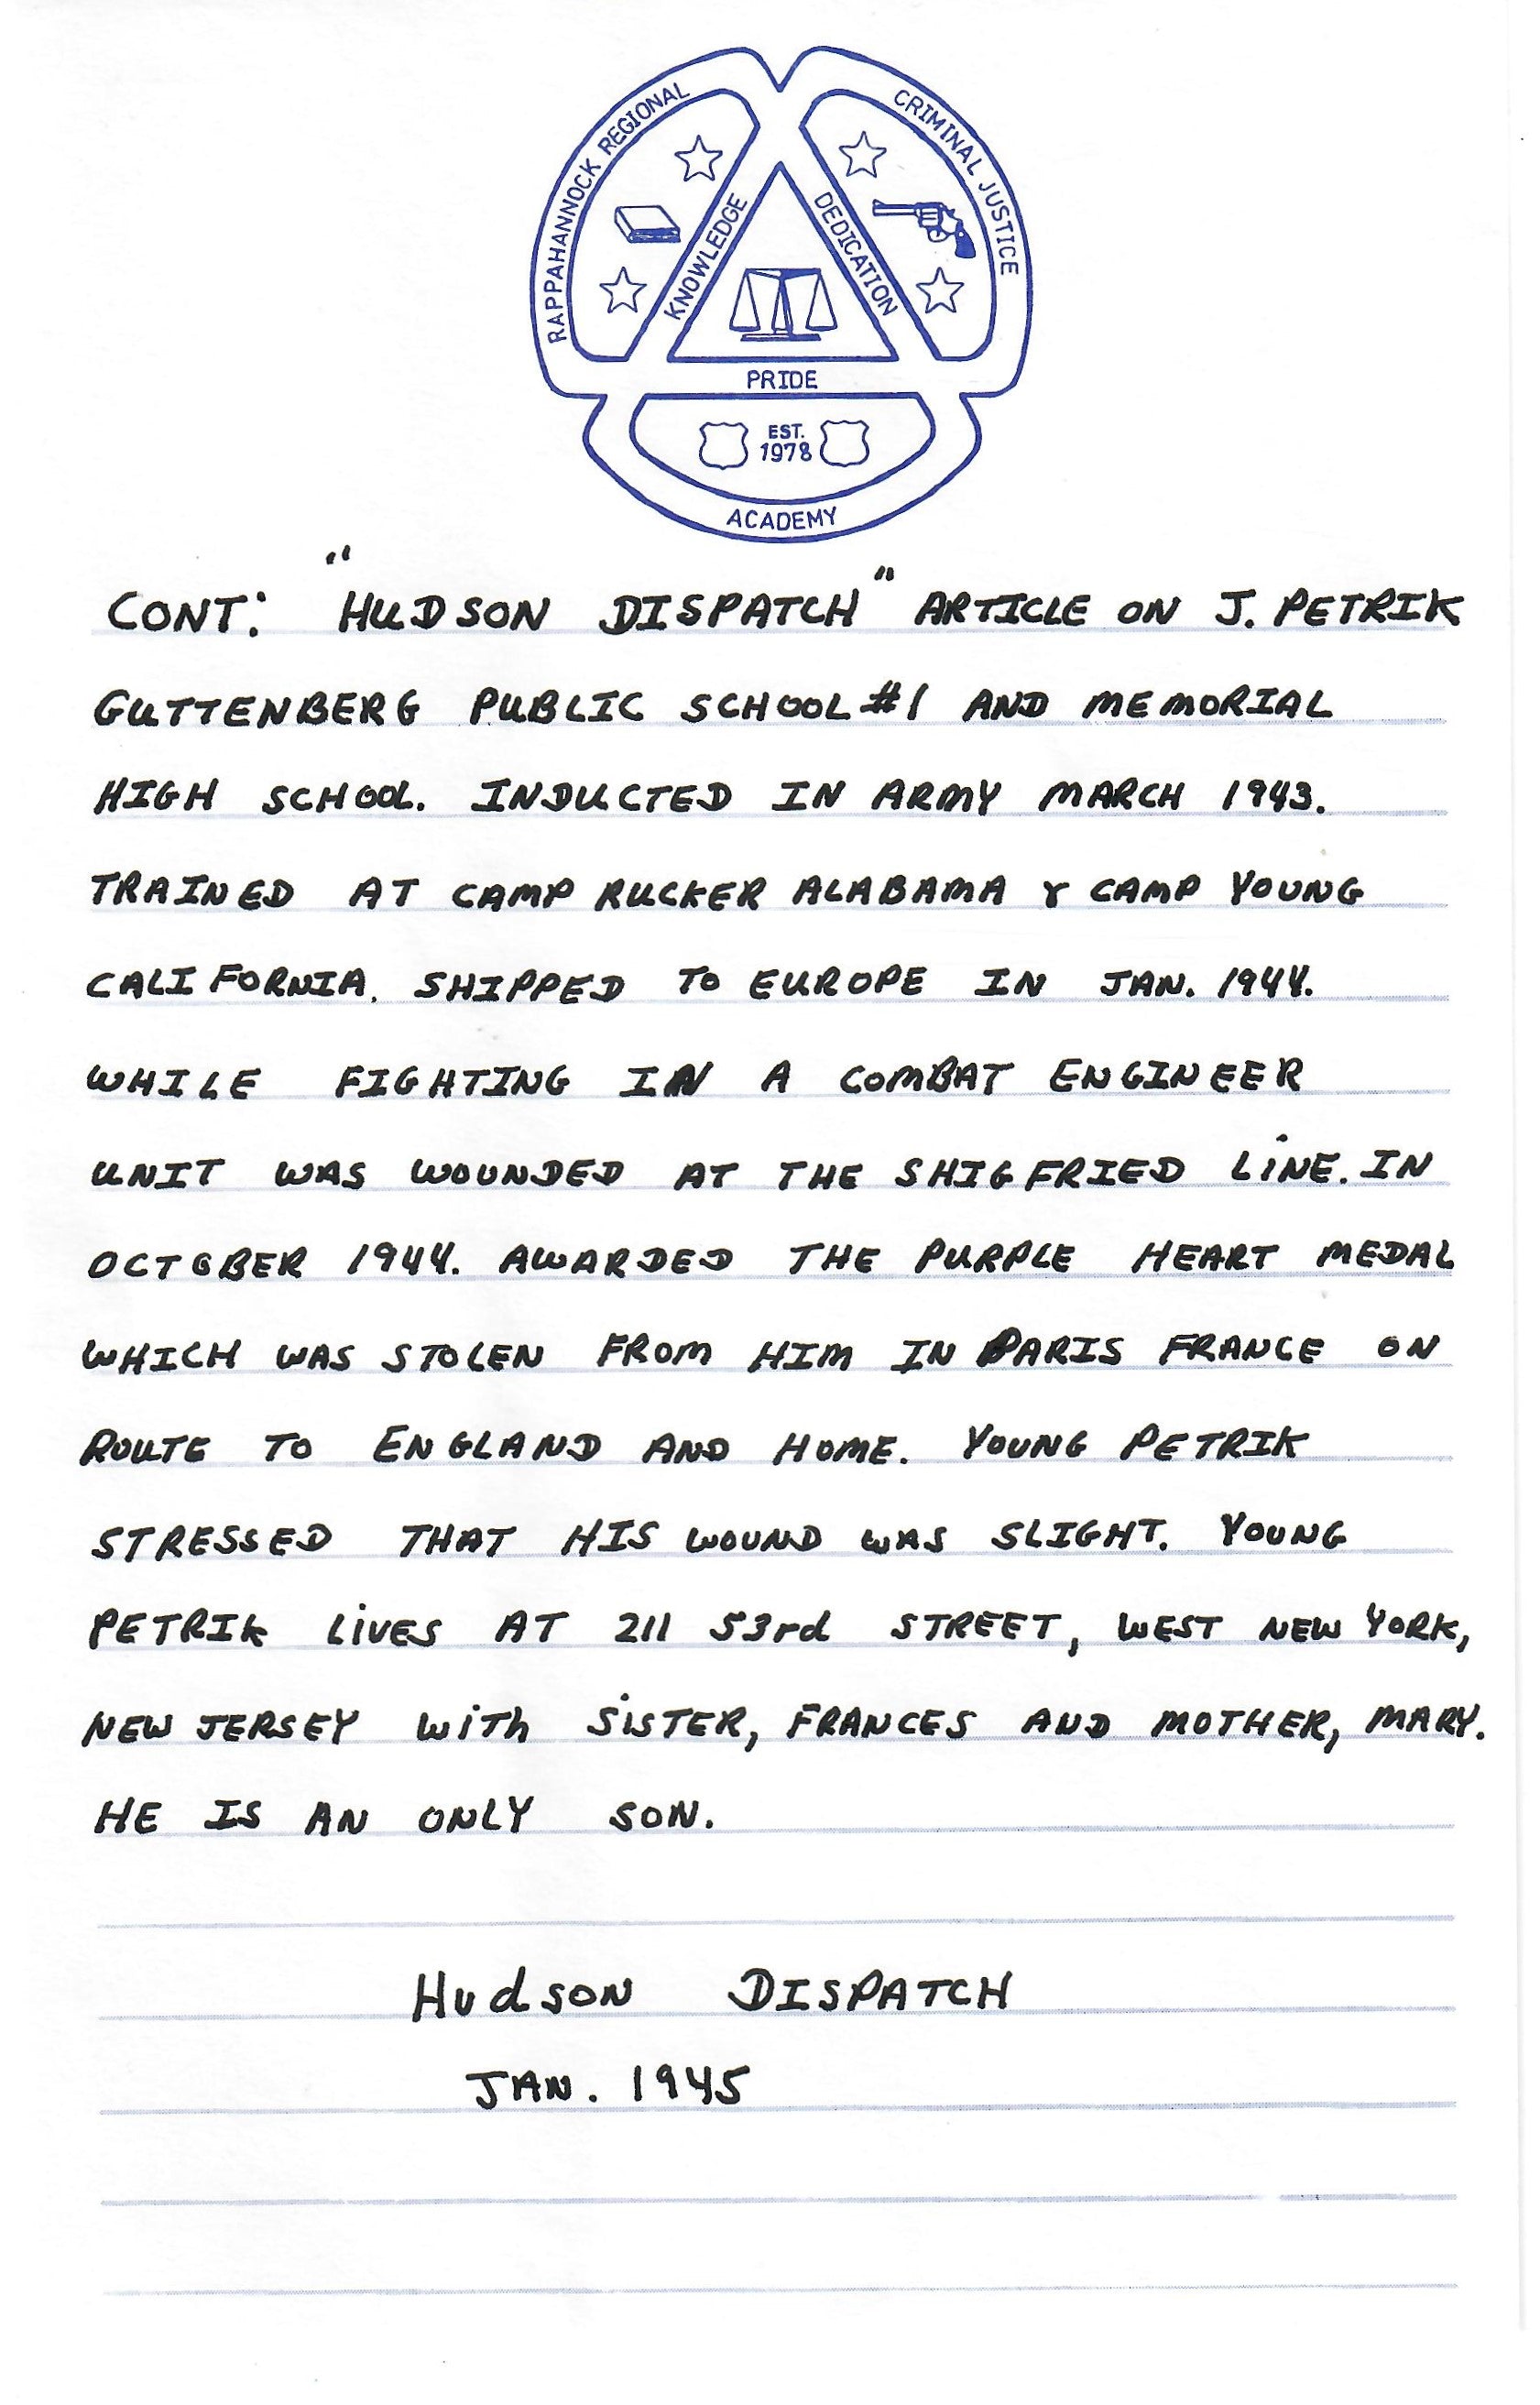 RAPPAHANNOCK REGIONAL
CRIMINAL JUSTICE
KNOWLEDGE
DEDICATION
PRIDE
EST.
1978
ACADEMY
CONT: "HUDSON DISPATCH" ARTICLE ON J. PETRIK
GUTTENBERG PUBLIC SCHOOL #1 AND MEMORIAL
HIGH SCHOOL. INDUCTED IN ARMY MARCH 1943.
TRAINED AT CAMP RUCKER ALABAMA & CAMP YOUNG
CALIFORNIA. SHIPPED TO EUROPE IN JAN. 1944.
WHILE FIGHTING IN A COMBAT ENGINEER
UNIT WAS WOUNDED AT THE SHIGFRIED LINE. IN
OCTOBER 1944. AWARDED THE PURPLE HEART MEDAL
WHICH WAS STOLEN FROM HIM IN PARIS FRANCE ON
ROUTE TO ENGLAND AND HOME. YOUNG PETRIK
STRESSED THAT HIS WOUND WAS SLIGHT. YOUNG
PETRIK LIVES AT 211 53rd STREET, WEST NEW YORK,
NEW JERSEY WITH SISTER, FRANCES AND MOTHER, MARY.
HE IS AN ONLY SON.
HUdSON DISPATCH
JAN. 1945